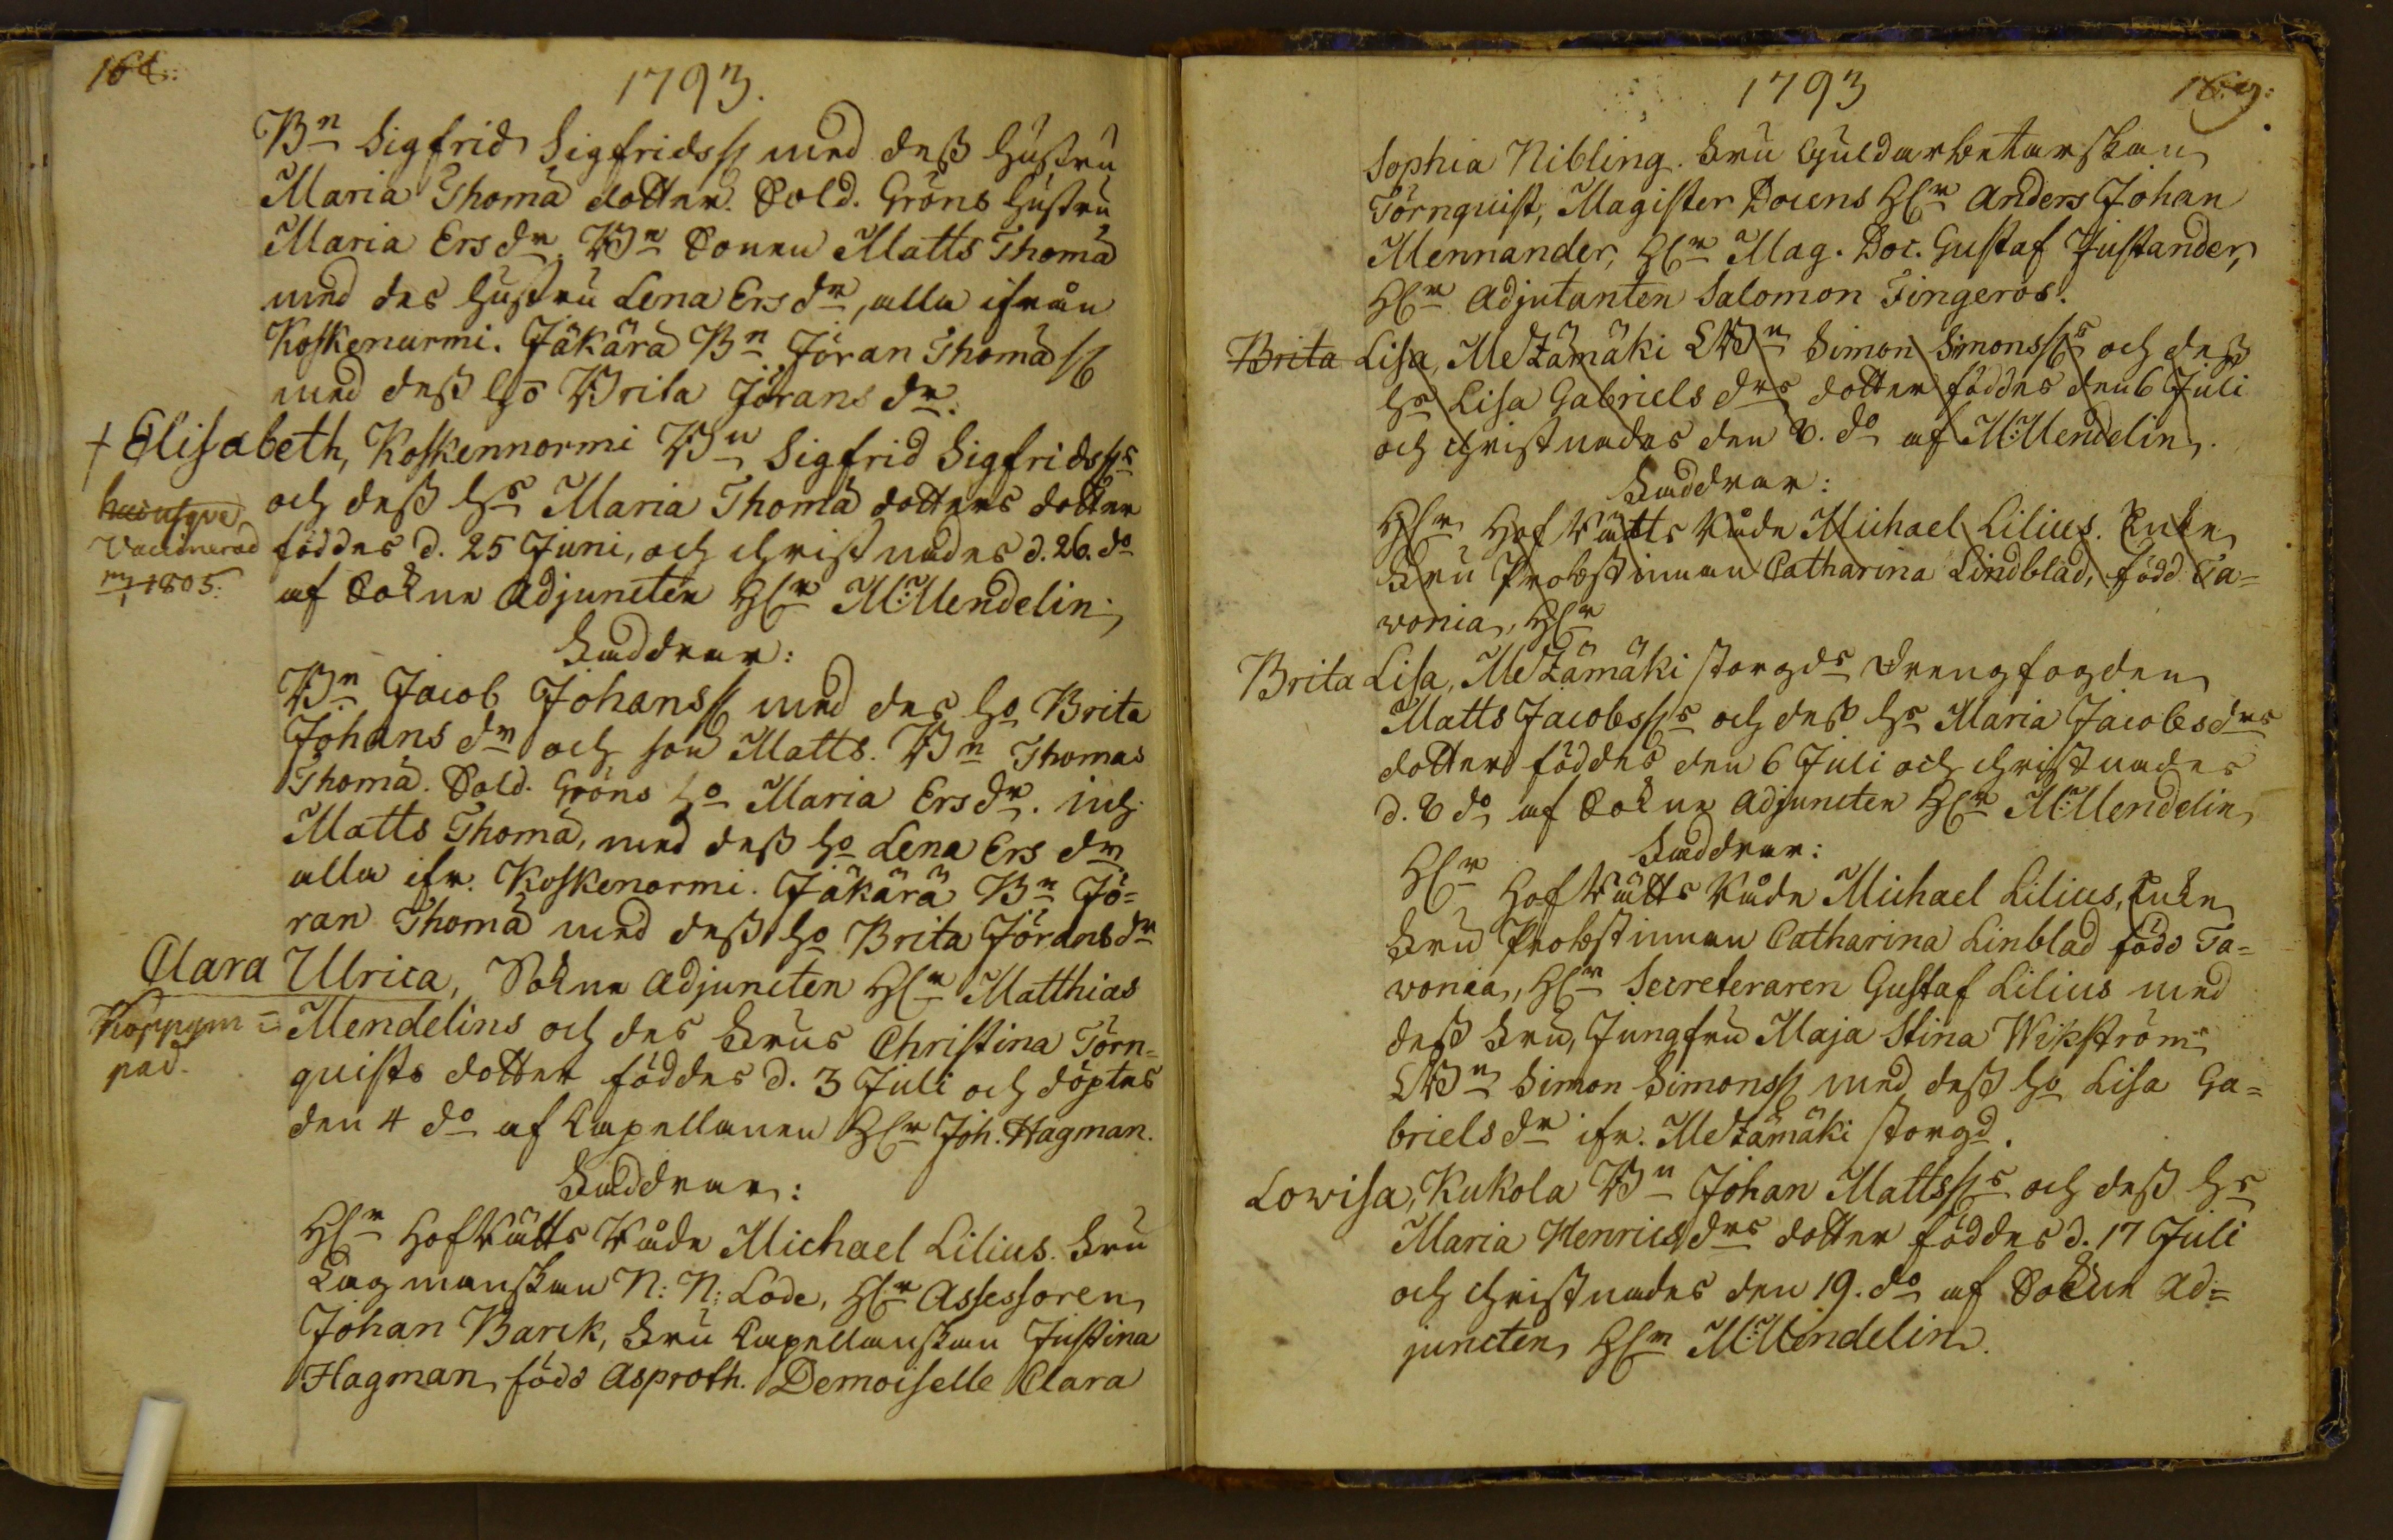 164.
1793.
Bn Sigfrid Sigfridss med dess hustru
Maria Thomä dotter. Sold. Gröns hustru
Maria Ersdr. Bn Sonen Matts Thomä
med des hustru Lena Ersdr, alla ifrån
Koskenurmi. Jäkärä Bn Jöran Thomä ss
med dess ho Brita Jöransdr.
+ Elisabeth, Koskennormi Bn Sigfrid Sigfridsss
och dess hs Maria Thomä dotters dotter
föddes d. 25 Juni, och christnades d. 26. do
af Sokne Adjuncten Hr M: Mendelin.
hucusque
Vaccinerad
1805.
Faddrar:
Bn Jacob Johanss med des ho Brita
Johansdr och son Matts. Bn Thomas
Thomä. Sold. Gröns ho Maria Ersdr. Inh.
Matts Thomä, med dess ho Lena Ersdr
alla ifr. Koskenormi. Jäkärä Bn Jö=
ran Thomä med dess ho Brita Jöransdr
Clara Ulrica, Sokne Adjuncten Hr Matthias
Mendelins och des Frus Christina Törn=
quists dotter föddes d. 3 Juli och döptes
den 4 do af Capellanen Hr Joh. Hagman.
Koppym=
pad.
Faddrar:
Hr HofRätts Råde Michael Lilius. Fru
Lagmanskan N: N: Lode, Hr Assessoren
Johan Barck, Fru Capellanskan Justina
Hagman, föds Asproth. Demoiselle Clara
1793
169.
Sophia Nibling. Fru Guldarbetarskan
Törnquist, Magister Docens Hr Anders Johan
Mennander, Hr Mag. Doc. Gustaf Justander,
Hr Adjutanten Salomon Fingeros.
Brita Lisa, Metzämäki LBn Simon Simonsss och dess
hs Lisa Gabrielsdrs dotter föddes den 6 Juli
och christnades den 8. do af M: Mendelin.
Faddrar:
Hr HofRätts Råde Michael Lilius. Enke
Fru Probstinnan Catharina Lindblad, född Ta=
wonia, Hr
Brita Lisa, Metzämäki storgds Drengfogden
Matts Jacobsss och dess hs Maria Jacobsdrs
dotter föddes den 6 Juli och christnades
d. 8 do af Sokne Adjuncten Hr M: Mendelin
Faddrar:
Hr HofRätts Råde Michael Lilius, Enke
Fru Probstinnan Catharina Linblad föds Ta=
wonia, Hr Secreteraren Gustaf Lilius med
dess Fru, Jungfru Maja Stina Wikström
LBn Simon Simonss med dess ho Lisa Ga=
brielsdr ifr. Metzämäki storgd.
Lowisa, Kukola Bn Johan Mattsss och dess hs
Maria Henricsdrs dotter föddes d. 17 Juli
och christnades den 19. do af Sokne Ad=
juncten Hr M: Mendelin.